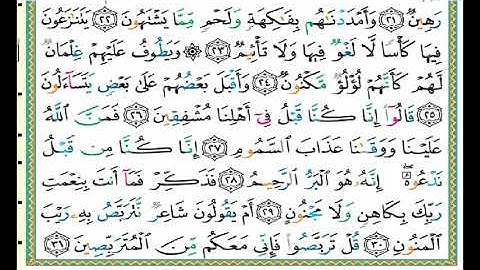 رَهِينٌ ۝٢١ وَأَمْدَدْنَٰهُم بِفَٰكِهَةٍ وَلَحْمٍ مِّمَّا يَشْتَهُونَ ۝٢٢ يَتَنَٰزَعُونَ
فِيهَا كَأْسًا لَّا لَغْوٌ فِيهَا وَلَا تَأْثِيمٌ ۝٢٣ وَيَطُوفُ عَلَيْهِمْ غِلْمَانٌ
لَّهُمْ كَأَنَّهُمْ لُؤْلُؤٌ مَّكْنُونٌ ۝٢٤ وَأَقْبَلَ بَعْضُهُمْ عَلَىٰ بَعْضٍ يَتَسَآءَلُونَ
۝٢٥ قَالُوٓا۟ إِنَّا كُنَّا قَبْلُ فِىٓ أَهْلِنَا مُشْفِقِينَ ۝٢٦ فَمَنَّ ٱللَّهُ
عَلَيْنَا وَوَقَىٰنَا عَذَابَ ٱلسَّمُومِ ۝٢٧ إِنَّا كُنَّا مِن قَبْلُ
نَدْعُوهُ إِنَّهُۥ هُوَ ٱلْبَرُّ ٱلرَّحِيمُ ۝٢٨ فَذَكِّرْ فَمَآ أَنتَ بِنِعْمَتِ
رَبِّكَ بِكَاهِنٍ وَلَا مَجْنُونٍ ۝٢٩ أَمْ يَقُولُونَ شَاعِرٌ نَّتَرَبَّصُ بِهِۦ رَيْبَ
ٱلْمَنُونِ ۝٣٠ قُلْ تَرَبَّصُوا۟ فَإِنِّى مَعَكُم مِّنَ ٱلْمُتَرَبِّصِينَ ۝٣١